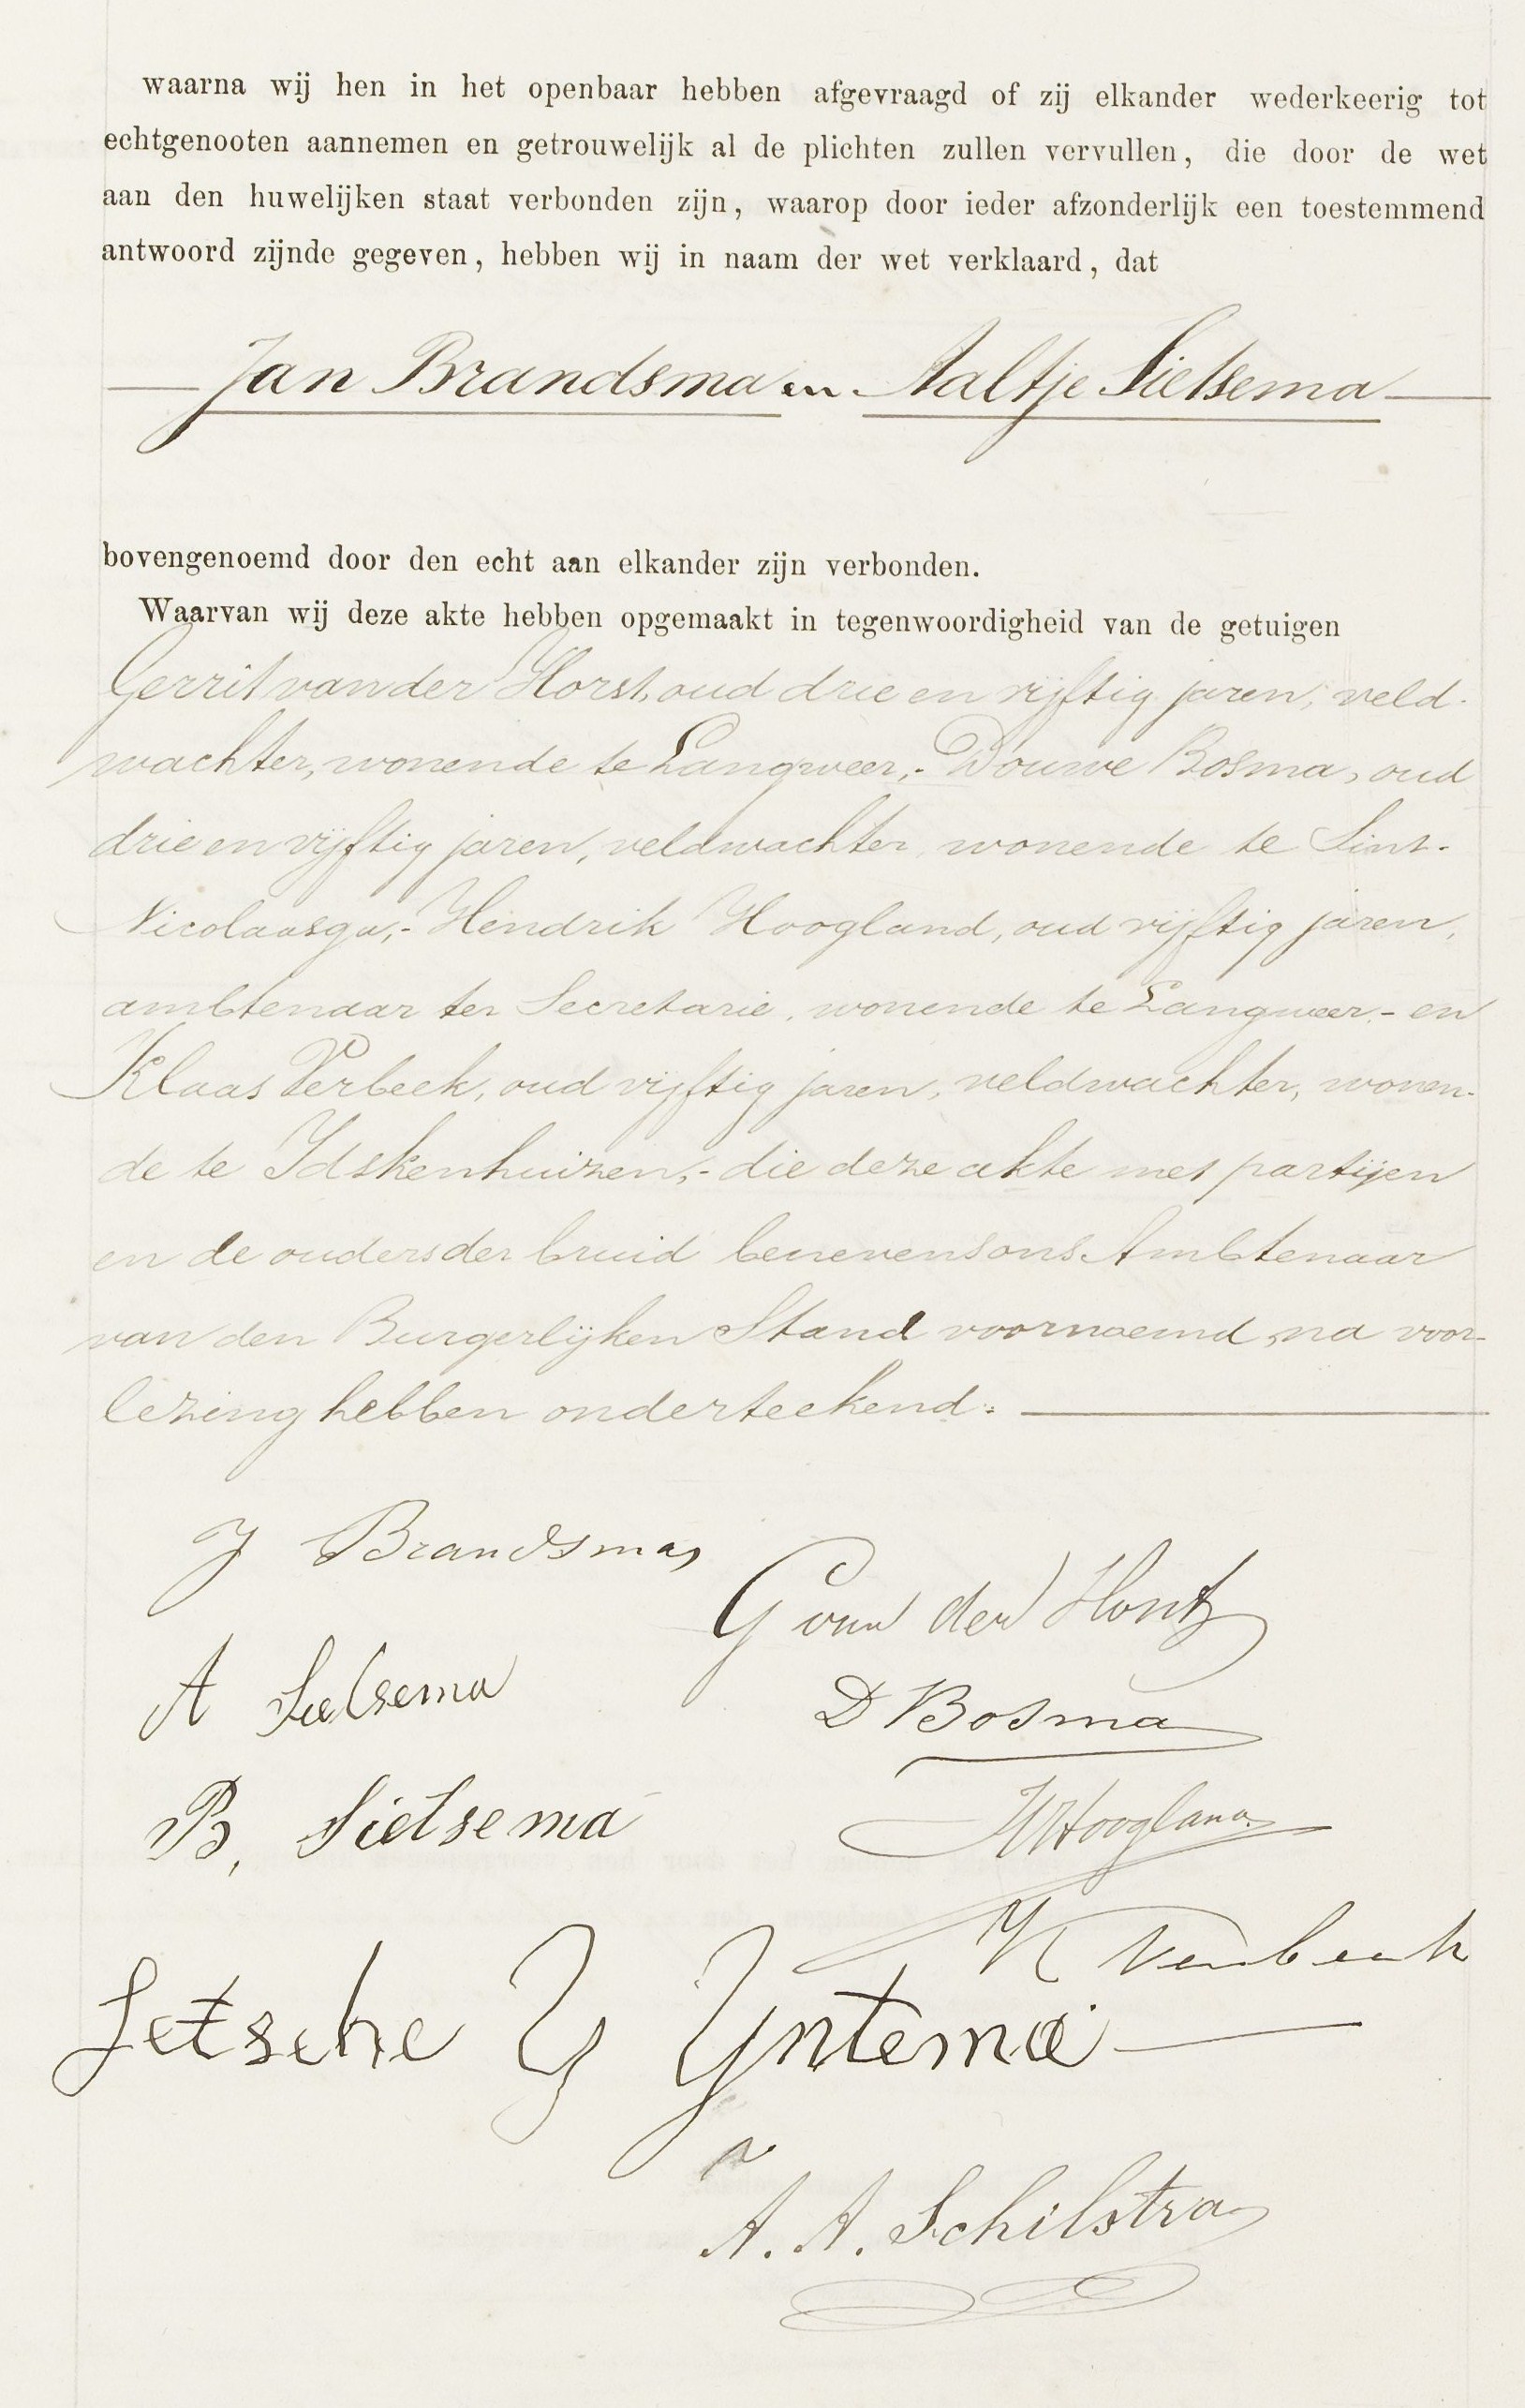 waarna wij hen in het openbaar hebben afgevraagd of zij elkander wederkeerig tot
echtgenooten aannemen en getrouwelijk al de plichten zullen vervullen, die door de wet
aan den huwelijken staat verbonden zijn, waarop door ieder afzonderlijk een toestemmend
antwoord zijnde gegeven, hebben wij in naam der wet verklaard, dat
Jan Brandsma en Aaltje Sietsema
bovengenoemd door den echt aan elkander zijn verbonden.
Waarvan wij deze akte hebben opgemaakt in tegenwoordigheid van de getuigen
Gerrit van der Horst, oud drie en vijftig jaren, veld-
wachter, wonende te Langweer,- Douwe Bosma, oud
drie en vijftig jaren, veldwachter, wonende te Sint-
Nicolaasga,- Hendrik Hoogland, oud vijftig jaren,
ambtenaar ter Secretarie, wonende te Langweer,- en
Klaas Verbeek, oud vijftig jaren, veldwachter, wonen-
de te Idskenhuizen,- die deze akte met partijen
en de ouders der bruid benevens ons Ambtenaar
van den Burgerlijken Stand voornoemd, na voor-
lezing hebben onderteekend.
J Brandsma
G van der Horst
A Sietsema
D Bosma
B, Sietsema
H Hoogland
K Verbeek
Jetsche IJ IJntema
A. A. Schilstra